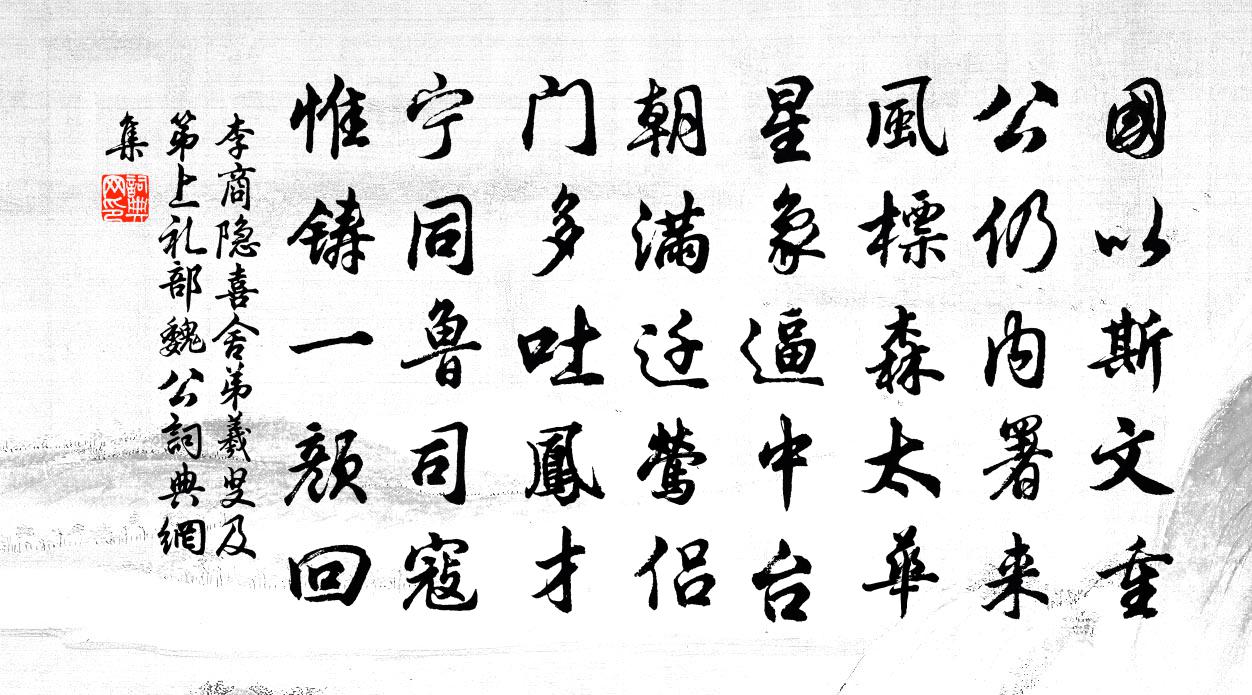 國以斯文重
公仍内署来
風標森太華
星象逼中台
朝滿迁鶯侣
门多吐鳳才
宁同鲁司寇
惟鑄一顏回
李商隐喜舍弟羲叟及
第上礼部魏公詞典網
集
詞典
网印